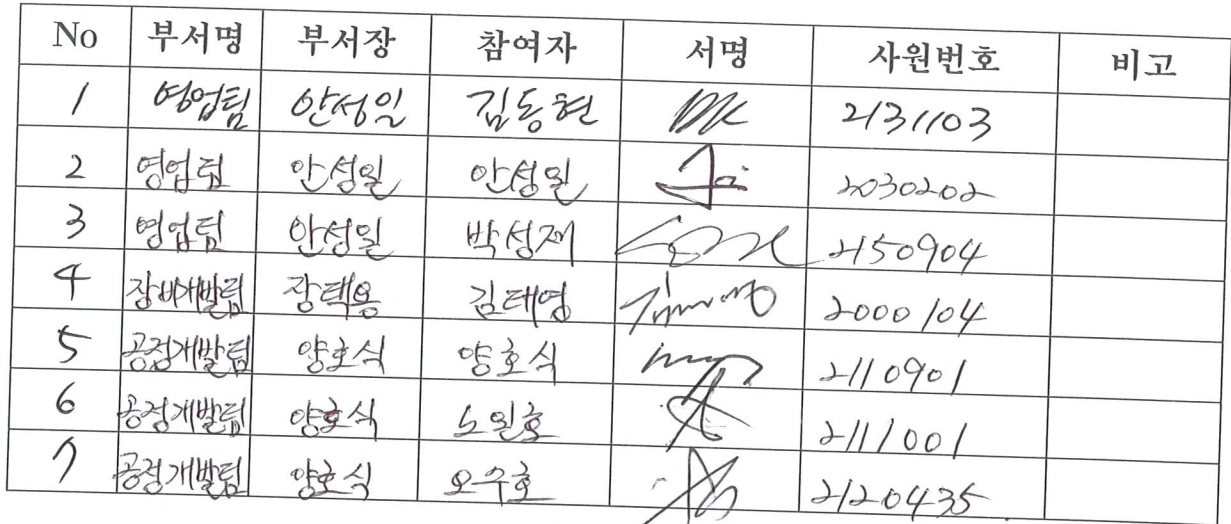 No 부서명 부서장 참여자 서명 사원번호 비고
1 영업팀 안성일 김동현 2131103
2 영업팀 안성일 안성일 2030202
3 영업팀 안성일 박성재 2150904
4 장비개발팀 장택용 김태영 2000104
5 공정개발팀 양호식 양호식 2110901
6 공정개발팀 양호식 노일호 2111001
7 공정개발팀 양호식 오수호 2120435